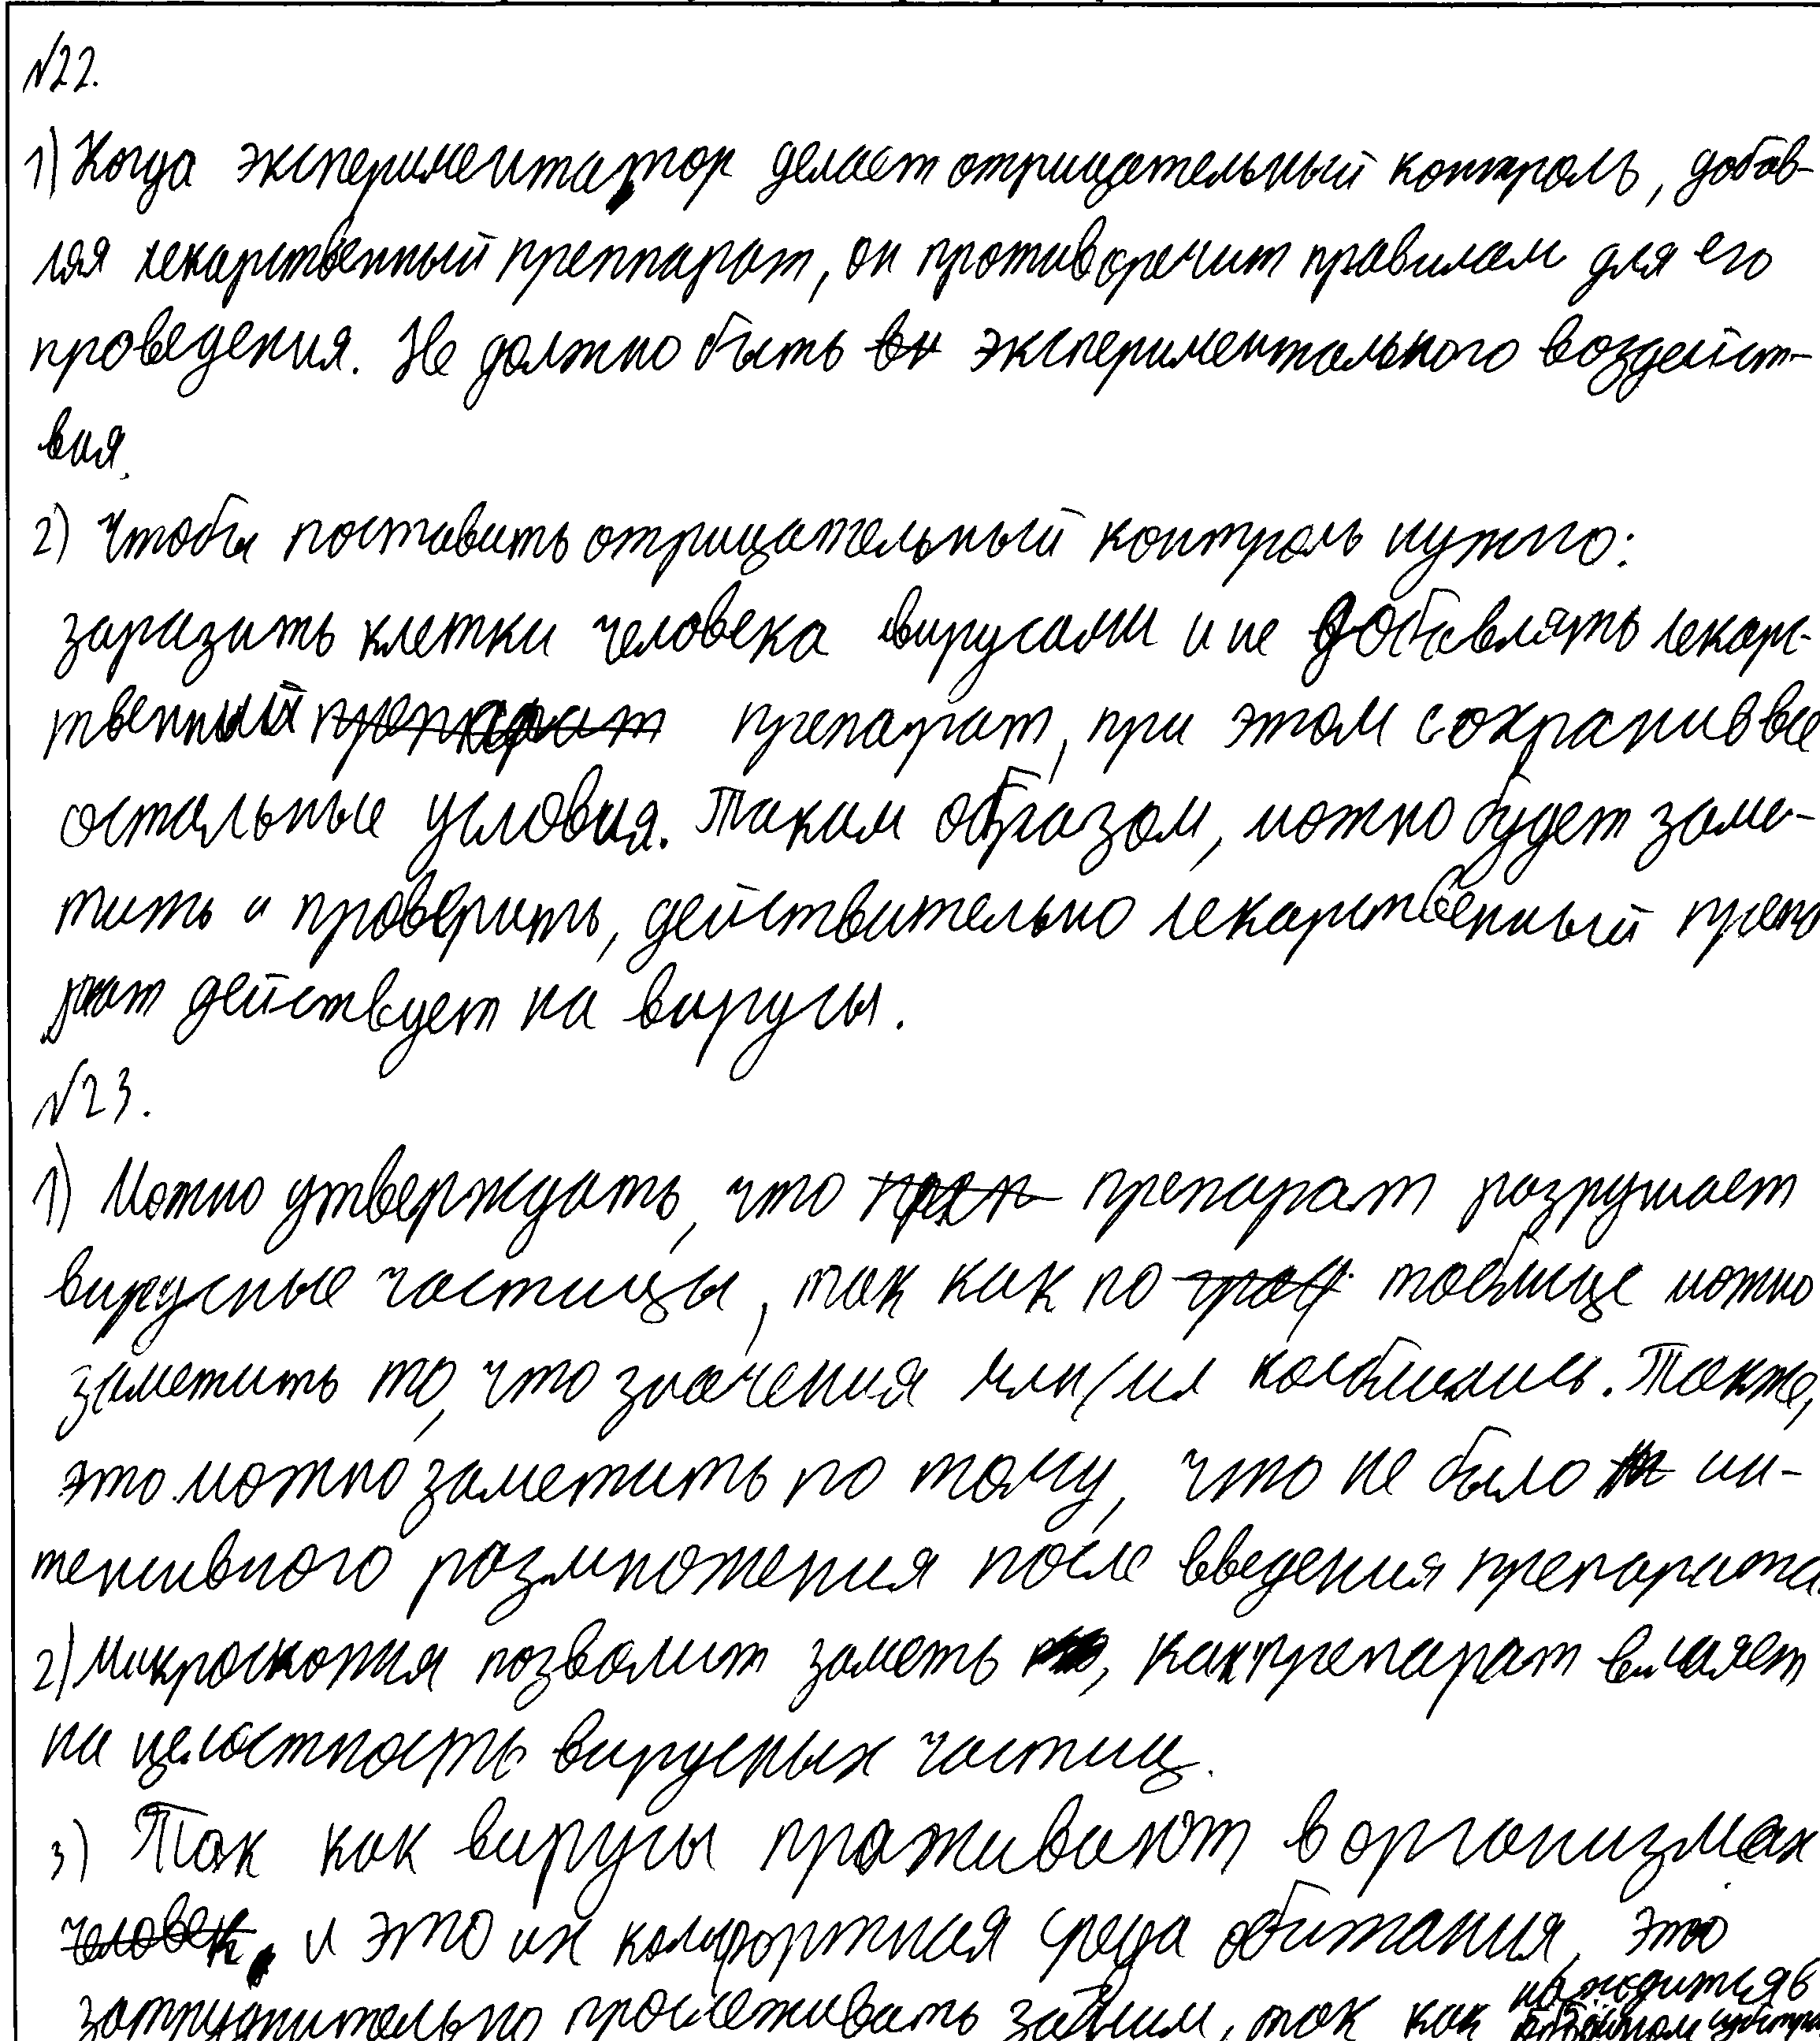 №22.
1) Когда экспериментатор делает отрицательный контроль, добав-
ляя лекарственный преппарат, он противоречит правилам для его
проведения. Не должно быть экспериментального воздейст-
вия.
2) Чтобы поставить отрицательный контроль нужно:
заразить клетки человека вирусами и не добавлять лекарс-
твенный препарат препарат, при этом сохранив все
остальные условия. Таким образом, можно будет заме-
тить и проверить, действительно лекарственный препа
рат действует на вирусы.
№23.
1) Можно утверждать, что преп препарат разрушает
вирусные частицы, так как по граф. таблице можно
заметить то, что значения млн/мл колбились. Также,
это можно заметить по тому, что не было ин-
тенсивного размножения после введения препарата.
2) Микроскопия позволит заметь, как препарат влияет
на целостность вирусных частиц.
3) Так как вирусы проживают в организмах
человек, и это их комфортная среда обитания, это
затруднительно прослеживать за ним, так как находится в